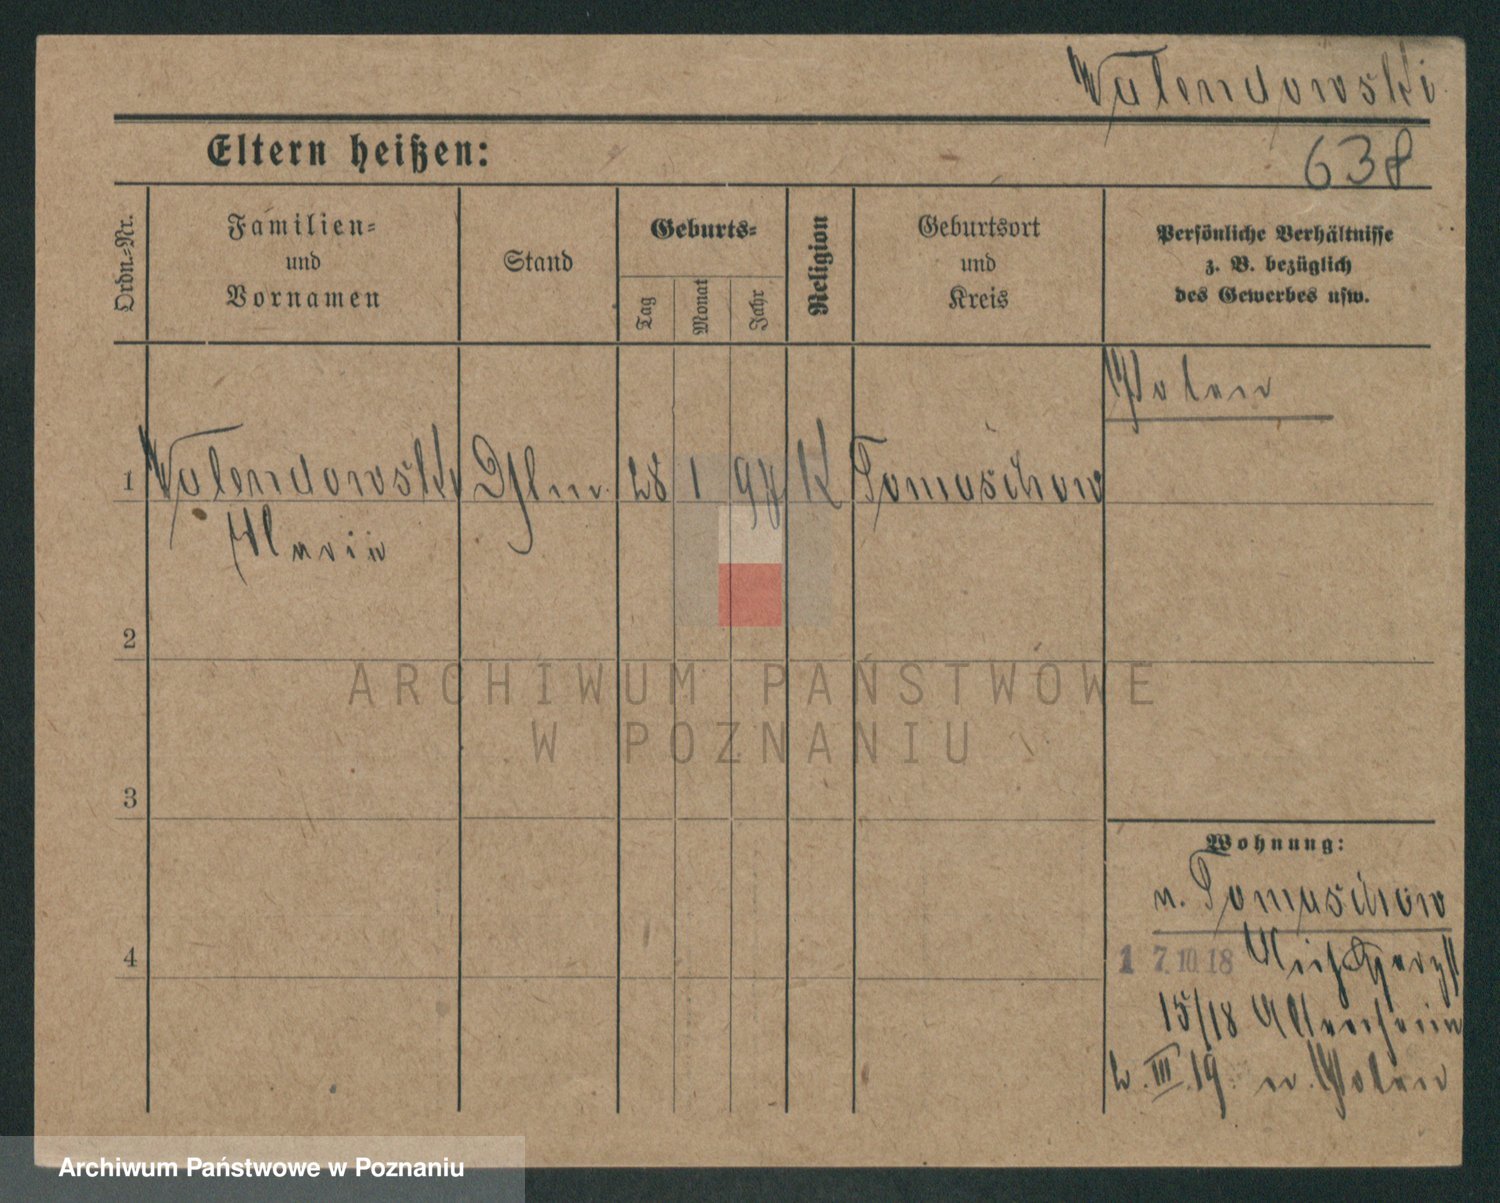 Walendowski
638
Eltern heißen:
Ordn.-Nr.
Familien-
und
Vornamen
Stand
Geburts-
Tag
Monat
Jahr
Religion
Geburtsort
und
Kreis
Persönliche Verhältnisse
z. B. bezüglich
des Gewerbes usw.
Polen
1 Walendowski 28 1 98 K Tomaschow
Maria
2
3
4
ARCHIWUM PAŃSTWOWE
W POZNANIU
Wohnung:
n. Tomaschow
1 7.10.18
15/18
2. III. 19. n. Polen
Archiwum Państwowe w Poznaniu